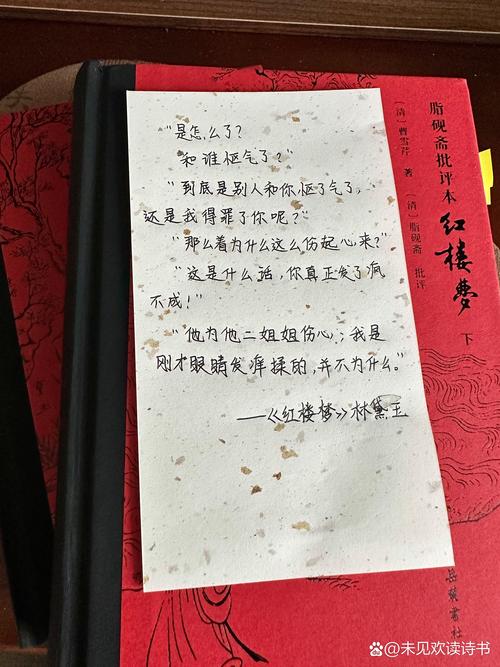 "是怎么了?
和谁怄气了?"
"到底是别人和你怄了气了,
还是我得罪了你呢?"
"那么着为什么这么伤起心来?"
"这是什么话,你真正发了疯
不成!"
"他为他二姐姐伤心;我是
刚才眼睛发痒揉的,并不为什么。"
——《红楼梦》林黛玉
脂砚斋批评本
红楼梦
下
〔清〕曹雪芹 著
〔清〕脂砚斋 批评
岳麓书社
百家号@未见欢读诗书